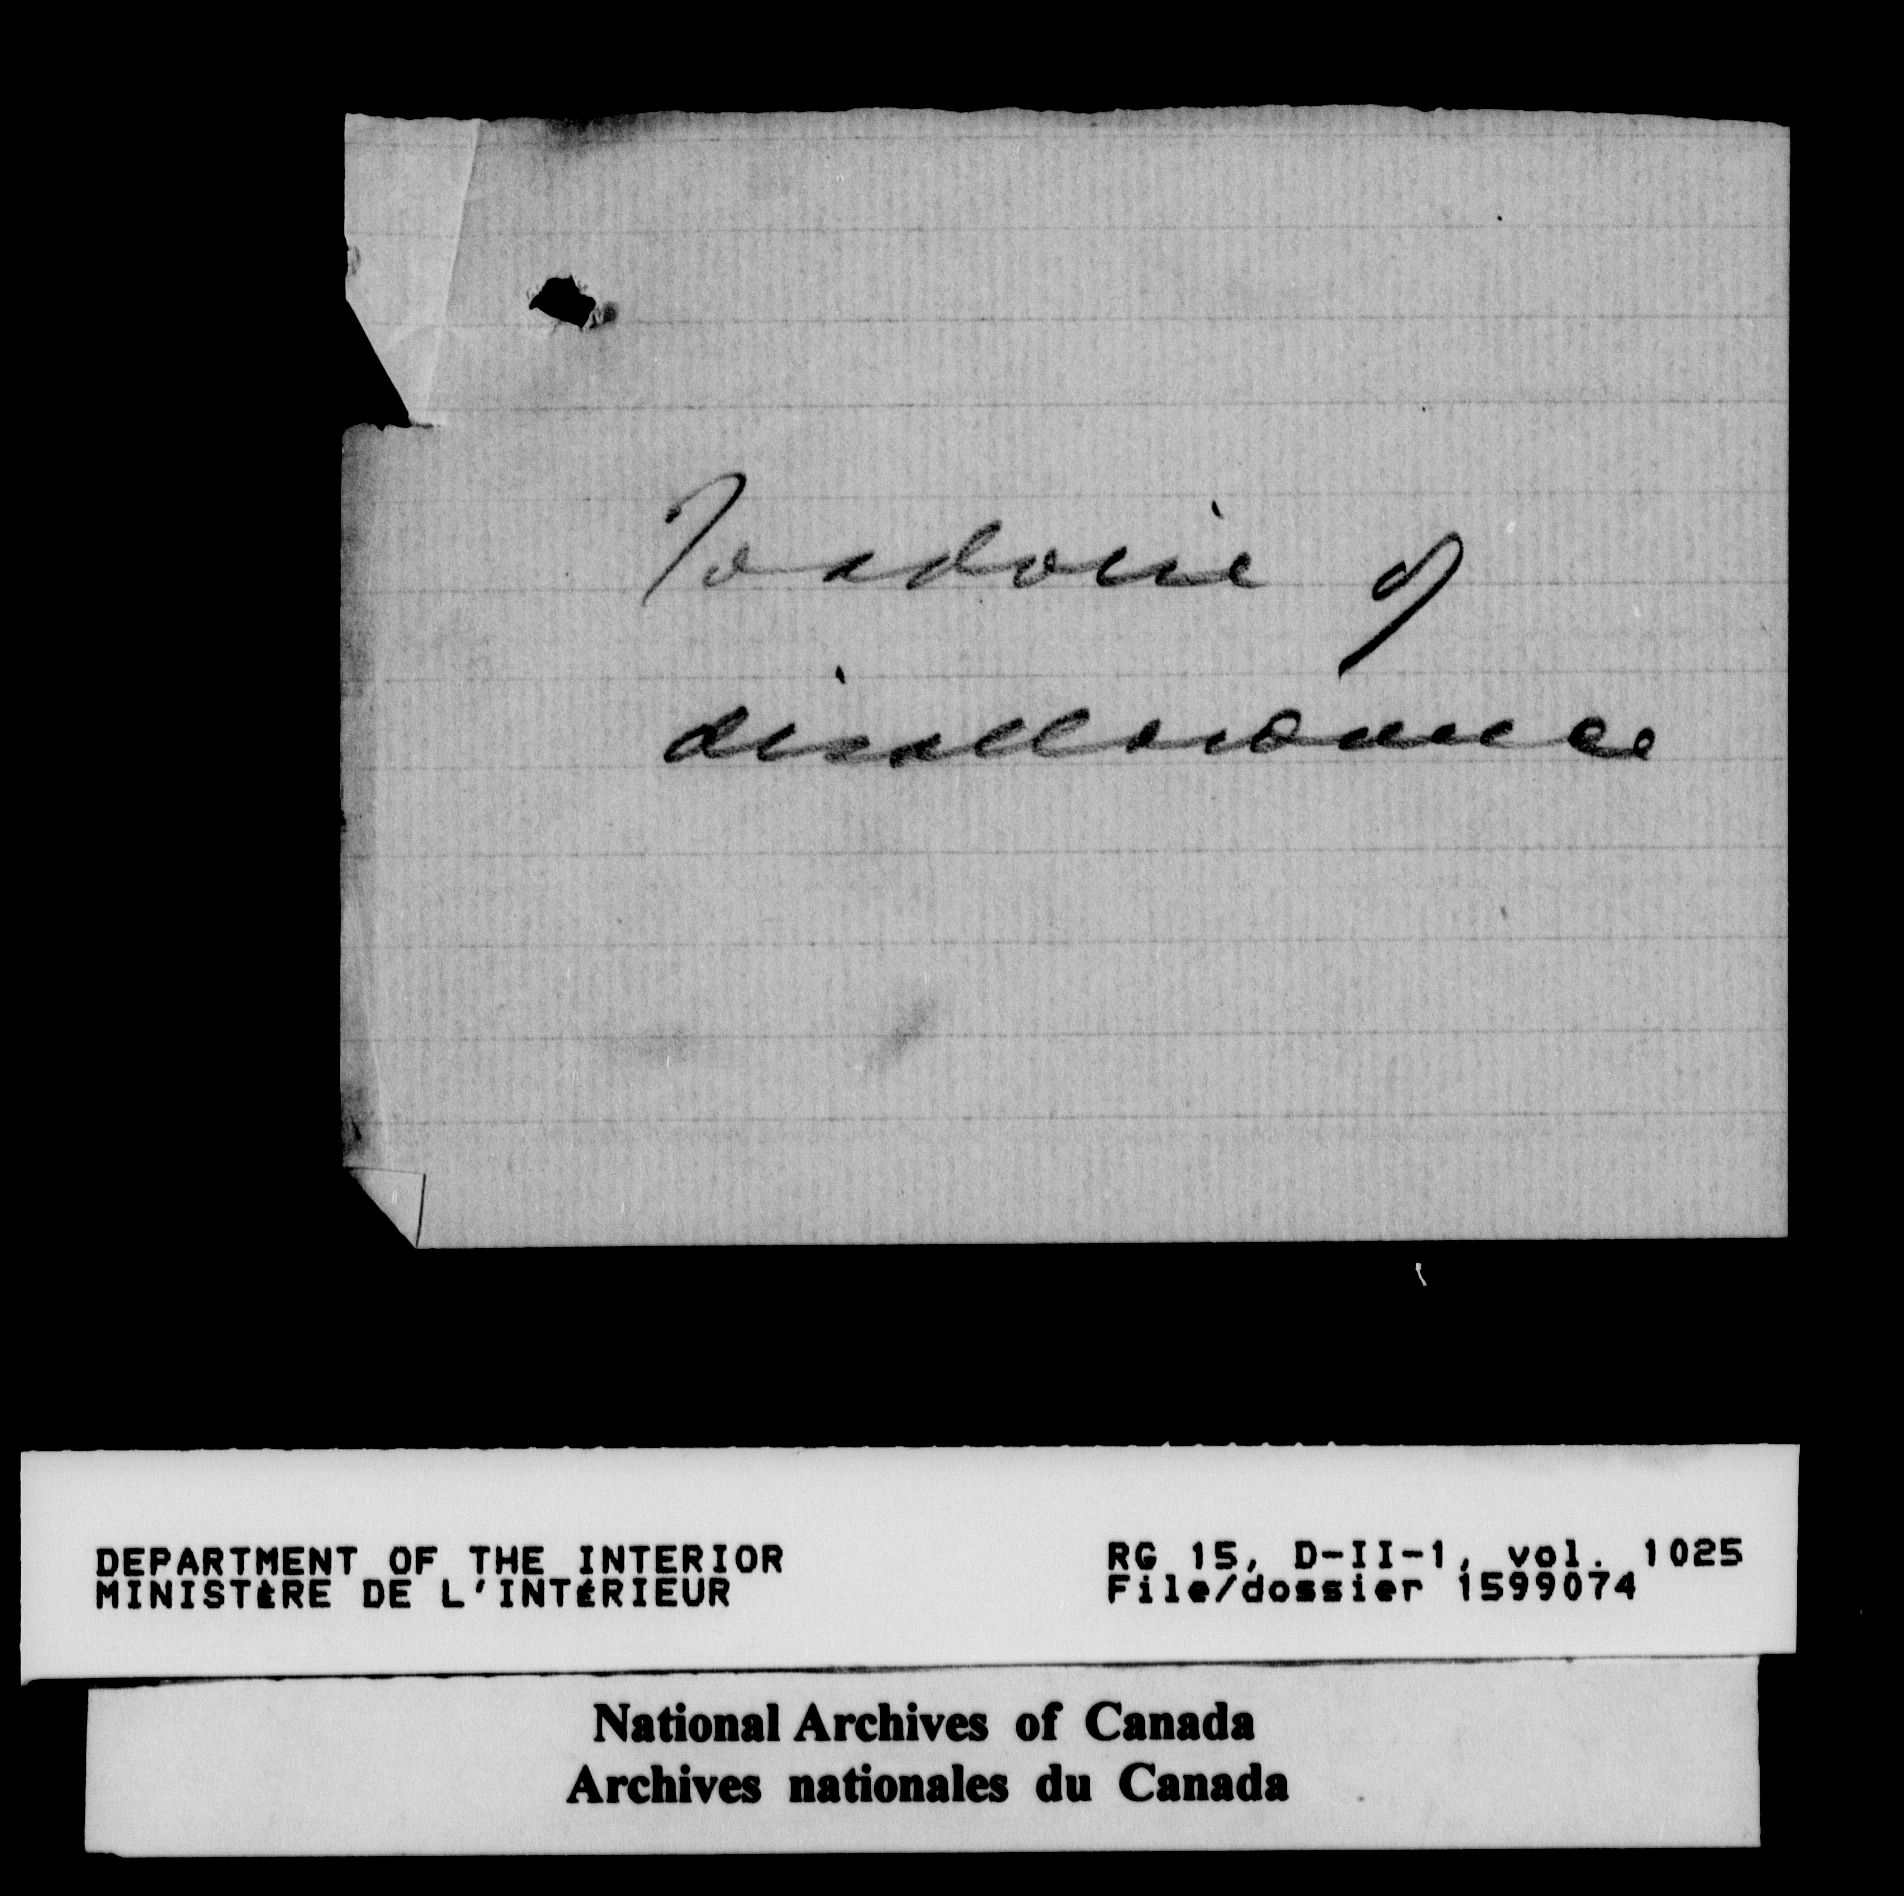 To advise of
disallowance
DEPARTMENT OF THE INTERIOR
MINISTÈRE DE L'INTÉRIEUR
RG 15, D-II-1, vol. 1025
File/dossier 1599074
National Archives of Canada
Archives nationales du Canada